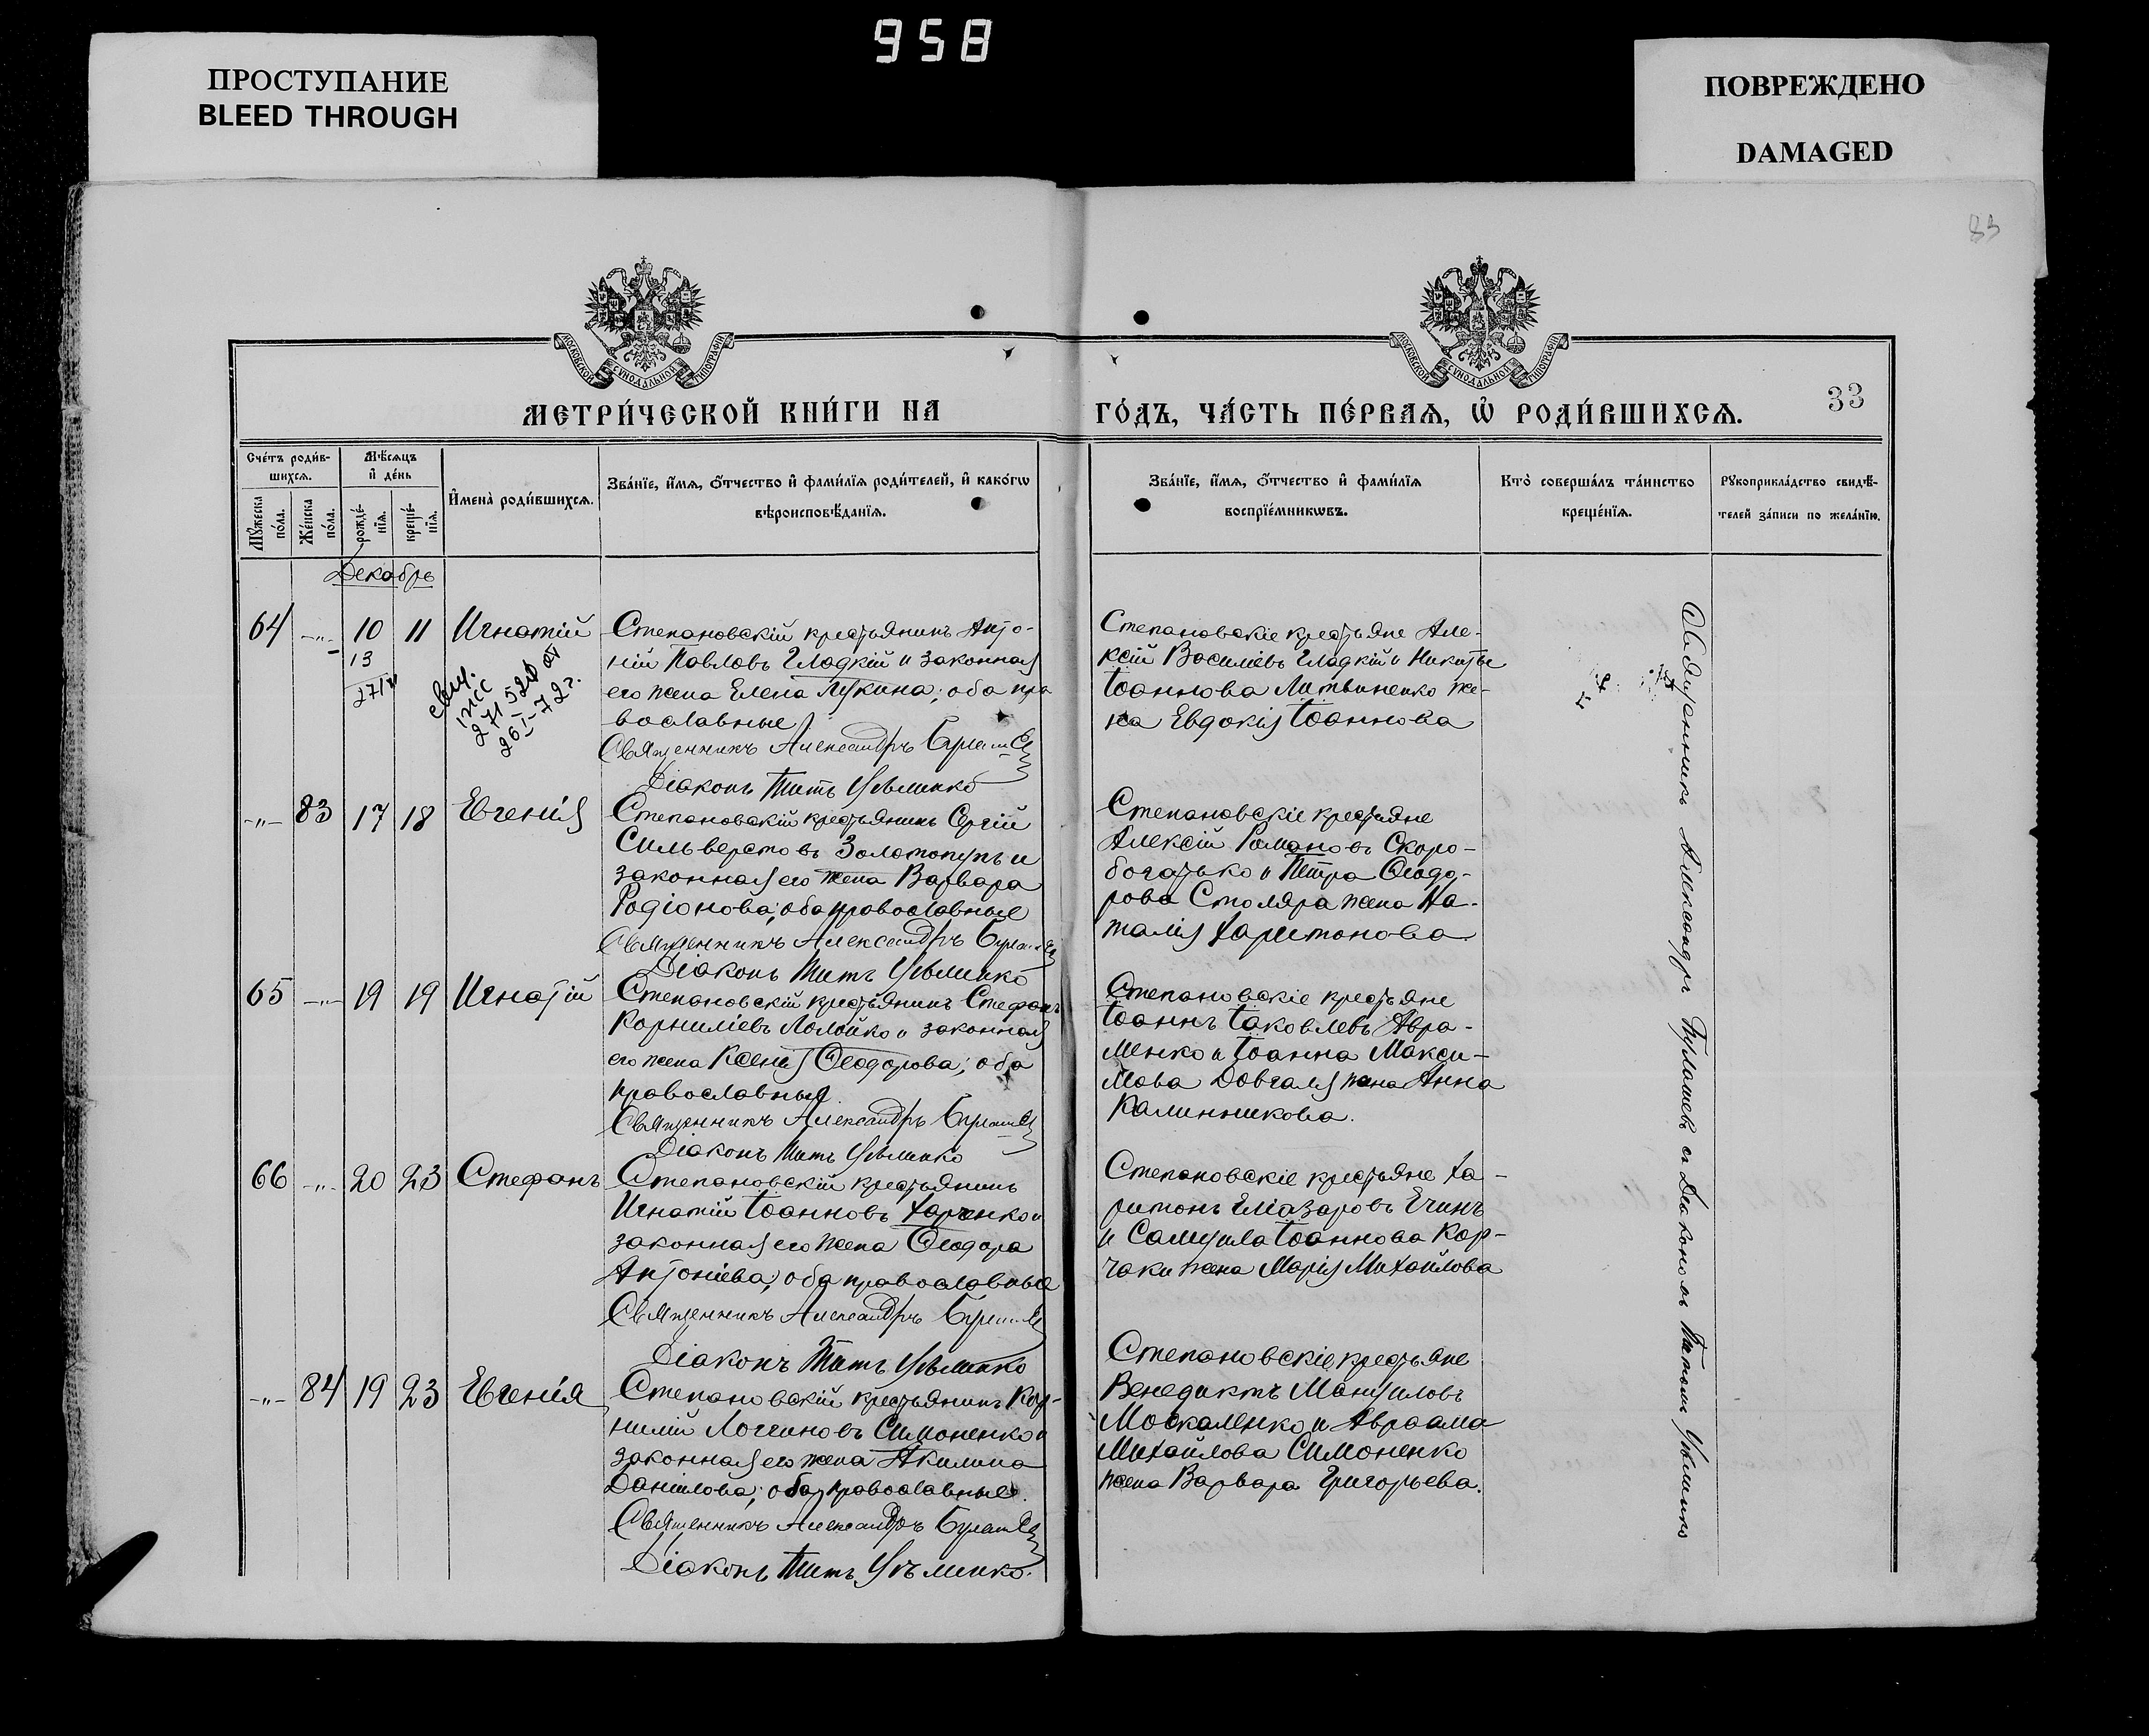 958
ПРОСТУПАНИЕ
BLEED THROUGH
ПОВРЕЖДЕНО
DAMAGED
83
МОСКОВСКОЙ СѴНОДАЛЬНОЙ ТИПОГРАФІИ
МОСКОВСКОЙ СѴНОДАЛЬНОЙ ТИПОГРАФІИ
33
МЕТРИ́ЧЕСКОЙ КНИ́ГИ НА
ГО́ДЪ, ЧА́СТЬ ПЕ́РВАѦ, Ѡ҆ РОДИ́ВШИХСѦ.
Сче́тъ роди́в-
шихсѧ.
Мꙋ́жеска по́ла.
Же́нска по́ла.
Мѣ́сѧцъ
и҆ де́нь
рожде́-
нїѧ.
креще́-
нїѧ.
И҆мена̀ роди́вшихсѧ.
Зва́нїе, и҆́мѧ, ѻ҆́тчество и҆ фами́лїѧ роди́телей, и҆ како́гѡ
вѣроисповѣ́данїѧ.
Зва́нїе, и҆́мѧ, ѻ҆́тчество и҆ фами́лїѧ
воспрїе́мникѡвъ.
Кто̀ соверша́лъ та́инство
креще́нїѧ.
Рꙋкоприкла́дство свидѣ́-
телей за́писи по жела́нїю.
Декабрь
64 -"- 10 11 Игнатій
13
Степановскій крестьянинъ Анто-
ній Павловъ Гладкій и законная
его жена Елена Лукина; оба пра
вославные
Священникъ Александръ
Діаконъ Титъ
Степановскіе крестьяне Але-
ксій Василіевъ Гладкій и Никиты
Іоаннова Литвиненко же-
на Евдокія Іоаннова
свид.
271520 от
26-I-72г.
-"- 83 17 18 Евгенія
Степановскій крестьянинъ Сергій
Сильверстовъ Золотопупъ и
законная его жена Варвара
Родіонова; оба православные
Священникъ Александръ
Діаконъ Титъ
Степановскіе крестьяне
Алексій Романовъ Скоро-
богатько и Петра Ѳеодо-
рова Столяра жена На-
талія Харитонова
65 -"- 19 19 Игнатій
Степановскій крестьянинъ Стефанъ
Корниліевъ Лолойко и законная
его жена Ксенія Ѳеодорова; оба
православные.
Священникъ Александръ
Діаконъ Титъ
Степановскіе крестьяне
Іоаннъ Іаковлевъ Авра-
менко и Іоанна Макси-
мова Довгаля жена Анна
Калинникова.
66 -"- 20 23 Стефанъ
Степановскій крестьянинъ
Игнатій Іоанновъ Харченко и
законная его жена Ѳеодора
Антоніева; оба православные
Священникъ Александръ
Діаконъ Титъ
Степановскіе крестьяне Ха-
ритонъ Еліазаровъ Ечинъ
и Самуила Іоаннова Кор-
чаки жена Марія Михайлова
-"- 84 19 23 Евгенія
Степановскій крестьянинъ Кор-
нилій Логгиновъ Симоненко и
законная его жена Акилина
Даніилова; оба православные.
Священникъ Александръ
Діаконъ Титъ
Степановскіе крестьяне
Венедиктъ Мануиловъ
Москаленко и Авраама
Михайлова Симоненко
жена Варвара Григорьева.
Священникъ Александръ съ Діакономъ Титомъ